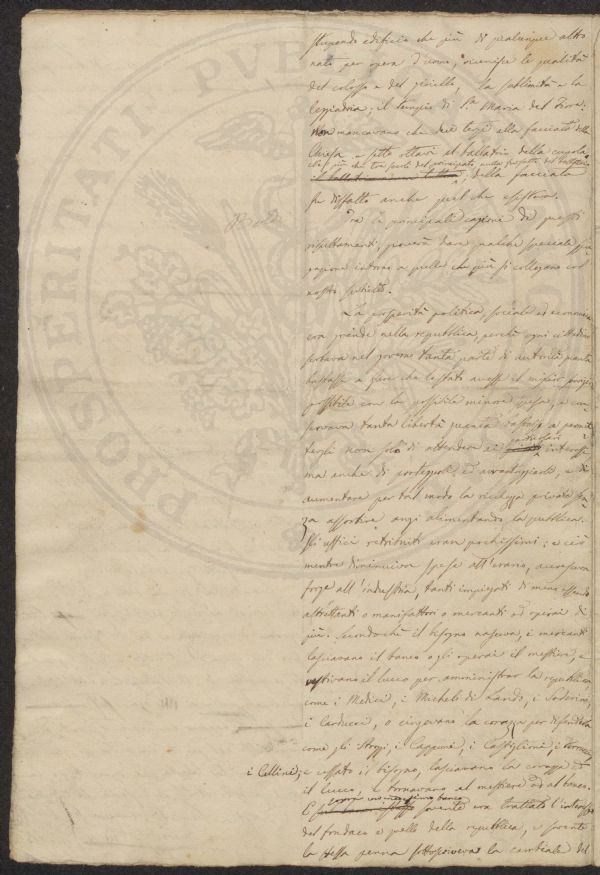 stupendo edificio che più di qualunque altro
nato per opera d'uomo, riunisce le qualità
del colosso e del gioiello, la sublimità e la
leggiadria; il tempio di S.ª Maria del Fiore:
Non mancavano che due terzi alla facciata della
Chiesa, e sette ottavi al ballatoio della cupola
che più che tre secoli del principato
il ballatoio della facciata
fu disfatto anche quel che esisteva.
Fra le principale cagione di questi
risultamenti, gioverà dare qualche speciale spie
gazione intorno a quelle che più si collegano col
nostro subietto.
La prosperità politica, sociale ed economica
era grande nella repubblica, perchè ogni cittadino
serbava nel governo tanta parte di autorità quanta
bastasse a fare che lo stato avesse il miglior
possibile con la possibile minore spesa, e con
servava tanta libertà quanta bastasse a permet
tergli non solo di attendere ai interessi
ma anche di proteggerli ed avvantaggiarli, e di
aumentare per tal modo la ricchezza privata sen
za assorbire anzi alimentando, la pubblica.
Gli uffici retribuiti eran pochissimi; e ciò
mentre diminuiva spese all'erario, accresceva
forze all'industria, tanti impiegati di meno essendo
altrettanti o manifattori o mercanti od operai di
più. Secondochè il bisogno nasceva, i mercanti
lasciavano il banco o gli operai il mestiere, e
vestivano il lucco per amministrar la repubblica
come i Medici, i Micheli di Lando, i Soderini,
i Carducci, o cingevano la corazza per difenderla
come gli Strozzi, i Capponi, i Castiglioni, i Ferrucci,
i Cellini; e cessato il bisogno, lasciavano la corazza ed
il lucco, e tornavano al mestiere od al banco.
E sovra uno medesimo banco sovente era trattato l'interesse
del fondaco e quello della repubblica, e sovente
la stessa penna sottoscriveva la cambiale del
PROSPERITATI PVBL